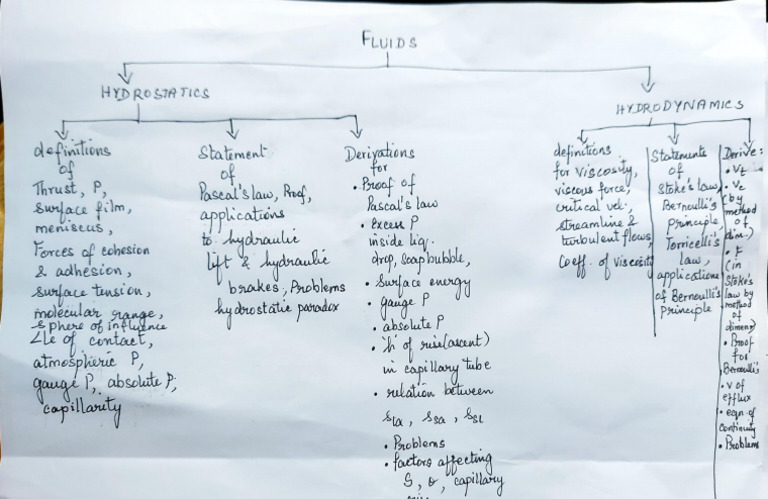 FLUIDS
HYDROSTATICS
definitions
of
Thrust, P,
surface film,
meniscus,
Forces of cohesion
& adhesion,
surface tension,
molecular range,
sphere of influence
∠le of contact,
atmospheric P,
gauge P, absolute P,
capillarity
Statement
of
Pascal's law, Proof,
applications
to hydraulic
lift & hydraulic
brakes, Problems
hydrostatic paradox
Derivations
for
• Proof of
Pascal's law
• Excess P
inside liq.
drop, soap bubble,
• surface energy
• gauge P
• absolute P
• 'h' of rise(ascent)
in capillary tube
• relation between
SLA, SSA, SSL
• Problems
• factors affecting
S, θ, capillary
HYDRODYNAMICS
definitions
for viscosity,
viscous force,
critical vel.,
streamline &
turbulent flows,
coeff. of viscosity
Statements
of
Stoke's law,
Bernoulli's
Principle,
Torricelli's
law,
applications
of Bernoulli's
Principle
Derive:
• Vt
• Vc
(by
method
of
dim.)
• F
(in
Stoke's
law by
method
of
dimens)
• Proof
for
Bernoulli's
• v of
efflux
• eqn of
continuity
• Problems